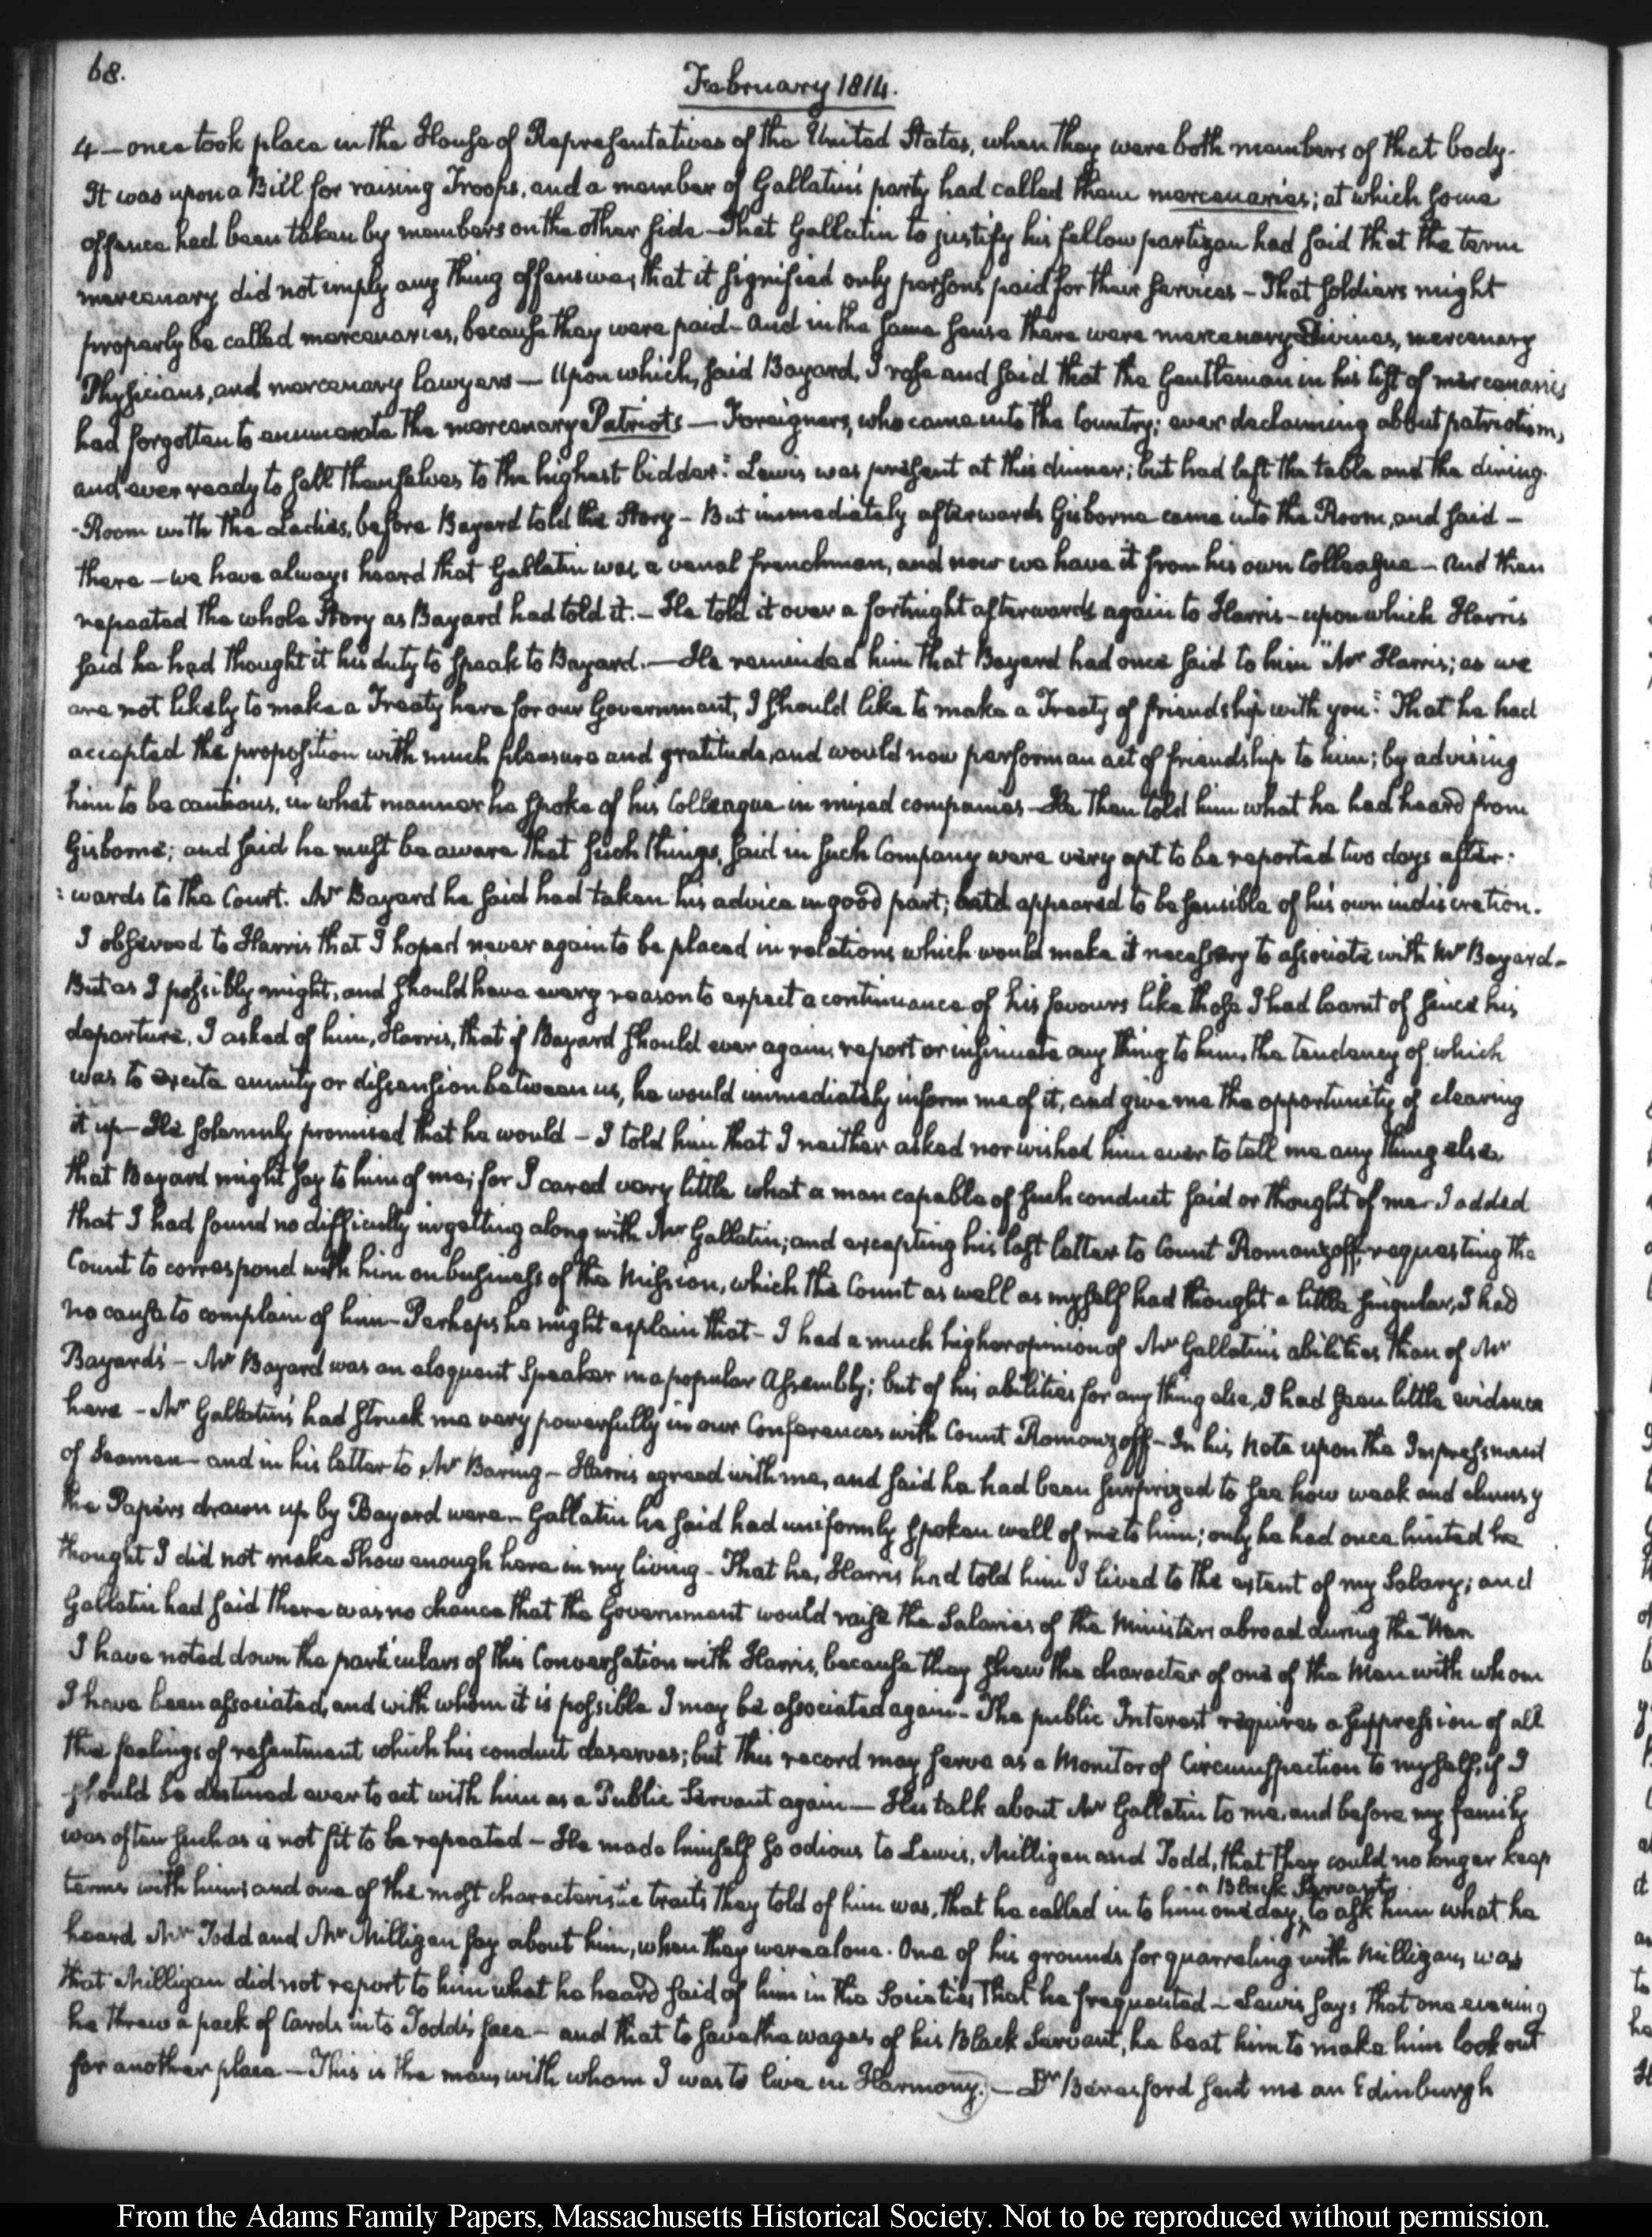 68.
February 1814.
4 — once took place in the House of Representatives of the United States, when they were both members of that body.
It was upon a Bill for raising Troops, and a member of Gallatin's party had called them mercenaries; at which some
offence had been taken by members on the other side — That Gallatin to justify his fellow partizan had said that the term
mercenary did not imply any thing offensive; that it signified only persons paid for their services — That soldiers might
properly be called mercenaries, because they were paid — and in the same sense there were mercenary Divines, mercenary
Physicians, and mercenary lawyers — Upon which, said Bayard, I rose and said that the Gentleman in his list of mercenaries
had forgotten to enumerate the mercenary Patriots — Foreigners, who came into the Country; ever declaiming about patriotism,
and ever ready to sell themselves to the highest bidder." Lewis was present at this dinner; but had left the table and the dining-
-Room with the Ladies, before Bayard told the Story — But immediately afterwards Gisborne came into the Room, and said —
there — we have always heard that Gallatin was a venal frenchman, and now we have it from his own Colleague — And then
repeated the whole Story as Bayard had told it. — He told it over a fortnight afterwards again to Harris — upon which Harris
said he had thought it his duty to speak to Bayard. — He reminded him that Bayard had once said to him "Mr Harris; as we
are not likely to make a Treaty here for our Government, I should like to make a Treaty of friendship with you." That he had
accepted the proposition with much pleasure and gratitude, and would now perform an act of friendship to him; by advising
him to be cautious, in what manner he spoke of his Colleague in mixed companies — He then told him what he had heard from
Gisborne; and said he must be aware that such things, said in such Company were very apt to be reported two days after:
:wards to the Court. Mr Bayard he said had taken his advice in good part; and appeared to be sensible of his own indiscretion.
I observed to Harris that I hoped never again to be placed in relations which would make it necessary to associate with Mr Bayard —
But as I possibly might, and should have every reason to expect a continuance of his favours like those I had learnt of since his
departure, I asked of him, Harris, that if Bayard should ever again report or insinuate any thing to him, the tendency of which
was to excite enmity or dissension between us, he would immediately inform me of it, and give me the opportunity of clearing
it up — He solemnly promised that he would — I told him that I neither asked nor wished him ever to tell me any thing else
that Bayard might say to him of me; for I cared very little what a man capable of such conduct said or thought of me — I added
that I had found no difficulty in getting along with Mr Gallatin; and excepting his last letter to Count Romanzoff, requesting the
Count to correspond with him on business of the Mission, which the Count as well as myself had thought a little singular, I had
no cause to complain of him — Perhaps he might explain that — I had a much higher opinion of Mr Gallatin's abilities than of Mr
Bayard's — Mr Bayard was an eloquent Speaker in a popular Assembly; but of his abilities for any thing else, I had seen little evidence
here — Mr Gallatin's had struck me very powerfully in our Conferences with Count Romanzoff — In his Note upon the Impressment
of Seamen — and in his letter to Mr Baring — Harris agreed with me, and said he had been surprized to see how weak and clumsy
the Papers drawn up by Bayard were — Gallatin he said had uniformly spoken well of me to him; only he had once hinted he
thought I did not make Show enough here in my living — That he, Harris had told him I lived to the extent of my Salary; and
Gallatin had said there was no chance that the Government would raise the Salaries of the Ministers abroad during the War
I have noted down the particulars of this Conversation with Harris, because they shew the character of one of the Men with whom
I have been associated, and with whom it is possible I may be associated again — The public Interest requires a suppression of all
the feelings of resentment which his conduct deserves; but this record may serve as a Monitor of Circumspection to myself, if I
should be destined ever to act with him as a Public Servant again — His talk about Mr Gallatin to me, and before my family
was often such as is not fit to be repeated — He made himself so odious to Lewis, Milligan and Todd, that they could no longer keep
terms with him; and one of the most characteristic traits they told of him was, that he called in to him one day, a Black Servant to ask him what he
heard Mr Todd and Mr Milligan say about him, when they were alone. One of his grounds for quarreling with Milligan, was
that Milligan did not report to him what he heard said of him in the Societies that he frequented — Lewis says that one evening
he threw a pack of Cards into Todd's face — and that to save the wages of his Black Servant, he beat him to make him look out
for another place — This is the man, with whom I was to live in Harmony. — Dr Beresford sent me an Edinburgh
From the Adams Family Papers, Massachusetts Historical Society. Not to be reproduced without permission.